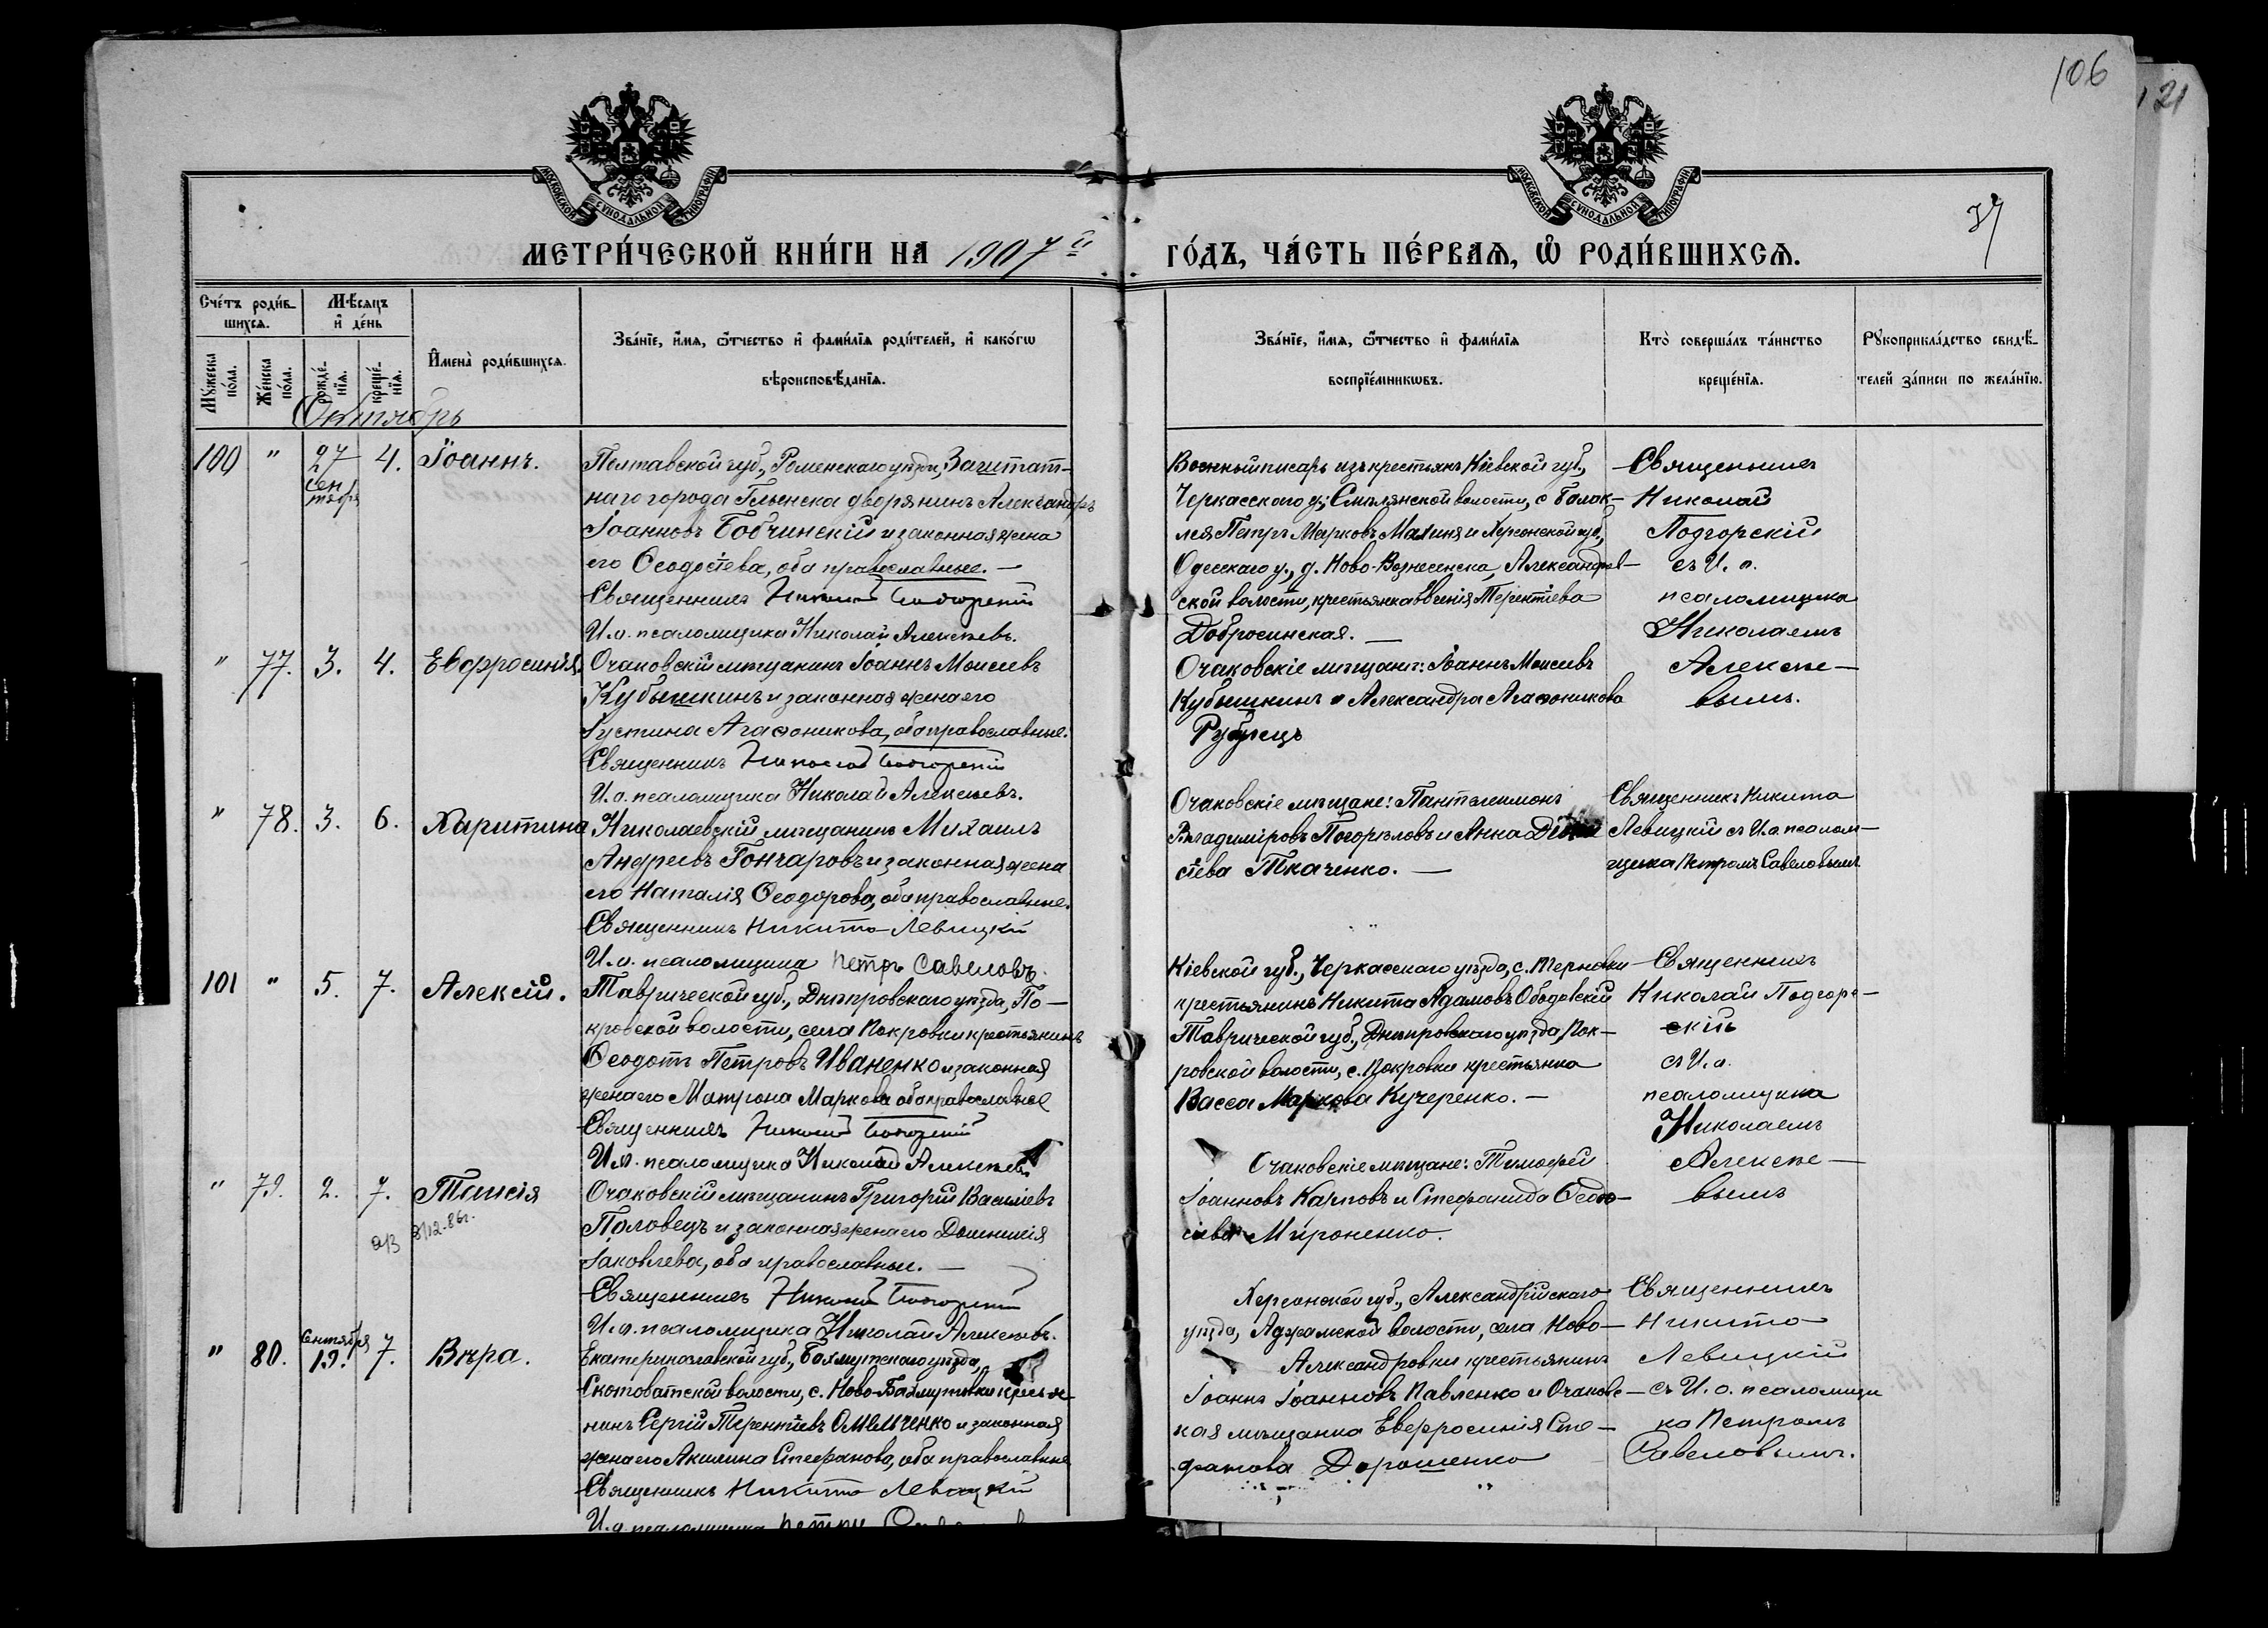 106
121
37
МОСКОВСКОЙ СѴНОДАЛЬНОЙ ТИПОГРАФІИ
МОСКОВСКОЙ СѴНОДАЛЬНОЙ ТИПОГРАФІИ
МЕТРИ́ЧЕСКОЙ КНИ́ГИ НА 1907й ГО́ДЪ, ЧА́СТЬ ПЕ́РВАѦ, Ѡ҆ РОДИ́ВШИХСѦ.
Сче́тъ роди́в-
шихся.
Мѣ́сяцъ
и҆ де́нь
Мꙋ́жеска по́ла.
Же́нска по́ла.
рожде́-
нїя.
креще́-
нїя.
И҆мена̀ роди́вшихся.
Зва́нїе, и҆́мя, ѻ҆́тчество и҆ фами́лїя роди́телей, и҆ како́гѡ
вѣроисповѣ́данїя.
Зва́нїе, и҆́мя, ѻ҆́тчество и҆ фами́лїя
воспрїе́мникѡвъ.
Кто̀ соверша́лъ та́инство
креще́нїя.
Рꙋкоприкла́дство свидѣ́-
телей за́писи по жела́нїю.
Октябрь
100 " 27 сентября 4. Іоаннъ.
Полтавской губ., Роменскаго уѣзда, Заштат-
наго города Глинска дворянинъ Александръ
Іоанновъ Бобчинскій и законная жена
его Ѳеодосіева, оба православные. —
Священникъ Николай Подгорскій
И.о. псаломщика Николай Алексѣевъ.
Военный писарь изъ крестьянъ Кіевской губ.,
Черкасскаго у., Смѣлянской волости, с. Балак-
лея Петръ Марковъ Малиня и Херсонской губ.,
Одесскаго у., д. Ново-Вознесенска, Александров-
ской волости, крестьянка Терентіева
Добросинская. —
Священникъ
Николай
Подгорскій
съ И. о.
псаломщика
Николаемъ
Алексѣе-
вымъ.
" 77. 3. 4. Евфросинія.
Очаковскій мѣщанинъ Іоаннъ Моисеевъ
Кубышкинъ и законная жена его
Іустина Агаѳоникова, оба православные.
Священникъ Николай Подгорскій
И.о. псаломщика Николай Алексѣевъ.
Очаковскіе мѣщане: Іоаннъ Моисеевъ
Кубышкинъ и Александра Агаѳоникова
" 78. 3. 6. Харитина
Николаевскій мѣщанинъ Михаилъ
Андреевъ Гончаровъ и законная жена
его Наталія Ѳеодорова, оба православные.
Священникъ Никита Левицкій
И.о. псаломщика Петръ Савеловъ.
Очаковскіе мѣщане: Пантелеимонъ
Владиміровъ Погорѣловъ и Анна
сіева Ткаченко. —
Священникъ Никита
Левицкій съ И.о. псалом-
щика Петромъ Савеловымъ
101 " 5. 7. Алексій.
Таврической губ., Днѣпровскаго уѣзда, По-
кровской волости, села Покровки крестьянинъ
Ѳеодотъ Петровъ Иваненко и законная
жена его Матрона Маркова оба православные
Священникъ Николай Подгорскій
И.о. псаломщика Николай Алексѣевъ
Кіевской губ., Черкасскаго уѣзда, с. Терновки
крестьянинъ Никита Адамовъ Ободовскій
Таврической губ., Днѣпровскаго уѣзда, Пок-
ровской волости, с. Покровки крестьянка
Васса Маркова Кучеренко. —
Священникъ
Николай Подгор-
скій
съ И.о.
псаломщика
Николаемъ
Алексѣе-
вымъ
" 79. 2. 7. Таисія
8/12-86г.
Очаковскій мѣщанинъ Григорій Василіевъ
Половецъ и законная жена его Домникія
Іаковлева, оба православные. —
Священникъ Николай Подгорскій
И.о. псаломщика Николай Алексѣевъ.
Очаковскіе мѣщане: Тимоѳей
Іоанновъ Карповъ и Стефанида Ѳеодо-
сіева Мироненко.
" 80. Сентября 19. 7. Вѣра.
Екатеринославской губ., Бахмутскаго уѣзда,
Скотоватской волости, с. Ново-Бахмутовки кресья-
нинъ Сергій Терентіевъ Омельченко и законная
жена его Акилина Стефанова, оба православные
Священникъ Никита Левицкій
И.о. псаломщика Петръ
Херсонской губ., Александрійскаго
уѣзда, Аджамской волости, села Ново-
Александровки крестьянинъ
Іоаннъ Іоанновъ Павленко и Очаковс-
кая мѣщанка Евфросинія Сте-
фанова Дорошенко
Священникъ
Никита
Левицкій
съ И. о. псаломщи
ка Петромъ
Савеловымъ.